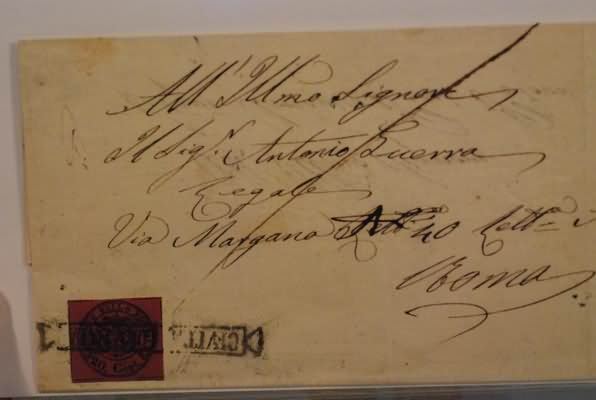 All'Illmo Signore
Il Sigr. Antonio Guerra
Legale
Via Margana 40 Lett=
Roma
CIVIT